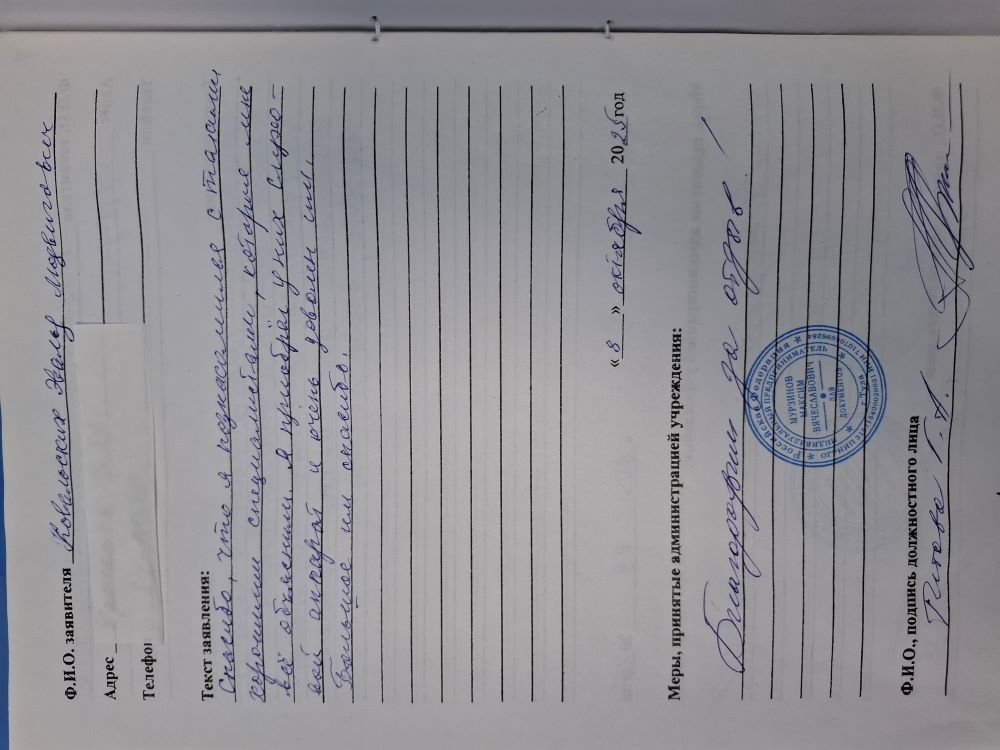 Ф.И.О. заявителя Ковальских Эвальд Людвигович
Адрес
Телефон
Текст заявления:
Спасибо, что я познакомился с такими
хорошими специалистами, которые мне
всё объяснили. Я приобрёл у них слухо-
вой аппарат и очень доволен им.
Большое им спасибо.
« 8 » октября 2025год
Меры, принятые администрацией учреждения:
Благодарим за отзыв!
Российская Федерация
ИНДИВИДУАЛЬНЫЙ ПРЕДПРИНИМАТЕЛЬ
МУРЗИНОВ
МАКСИМ
ВЯЧЕСЛАВОВИЧ
ДЛЯ
ДОКУМЕНТОВ
г.Тула
Ф.И.О., подпись должностного лица
Титова Г.А.